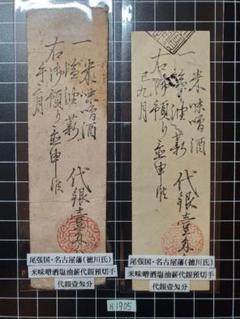 一 米味噌酒
塩油薪 代銀壹匁
右御預り申候
午二月
尾張国・名古屋藩(徳川氏)
米味噌酒塩油薪代銀預切手
代銀壹匁分
一 米味噌酒
塩油薪 代銀壹匁
右御預り申候
巳九月
尾張国・名古屋藩(徳川氏)
米味噌酒塩油薪代銀預切手
代銀壹匁分
H1905